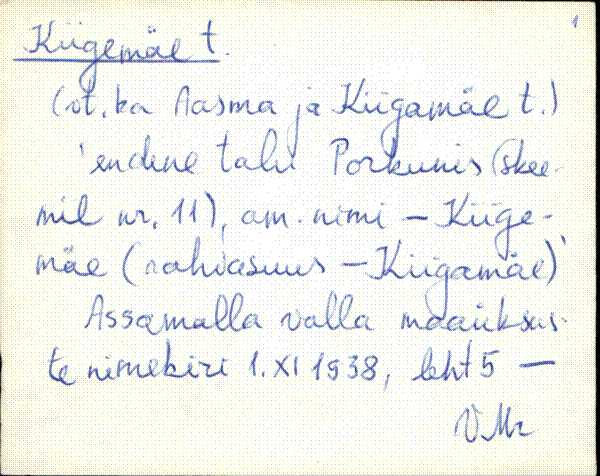 1
Kiigemäe t.
(vt. ka Aasma ja Kiigamäe t.)
'endine talu Porkunis (skee-
mil nr. 11), am. nimi – Kiige-
mäe (rahvasuus – Kiigamäe)'
Assamalla valla maaüksus-
te nimekiri 1.XI 1938, leht 5 –
VMr